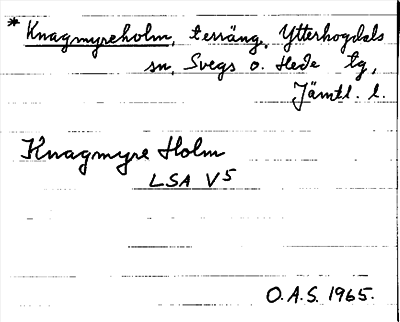 * Knagmyreholm, terräng, Ytterhogdals
sn, Svegs o. Hede tg,
Jämtl. l.
Knagmyre Holm
LSA V5
O.A.S. 1965.